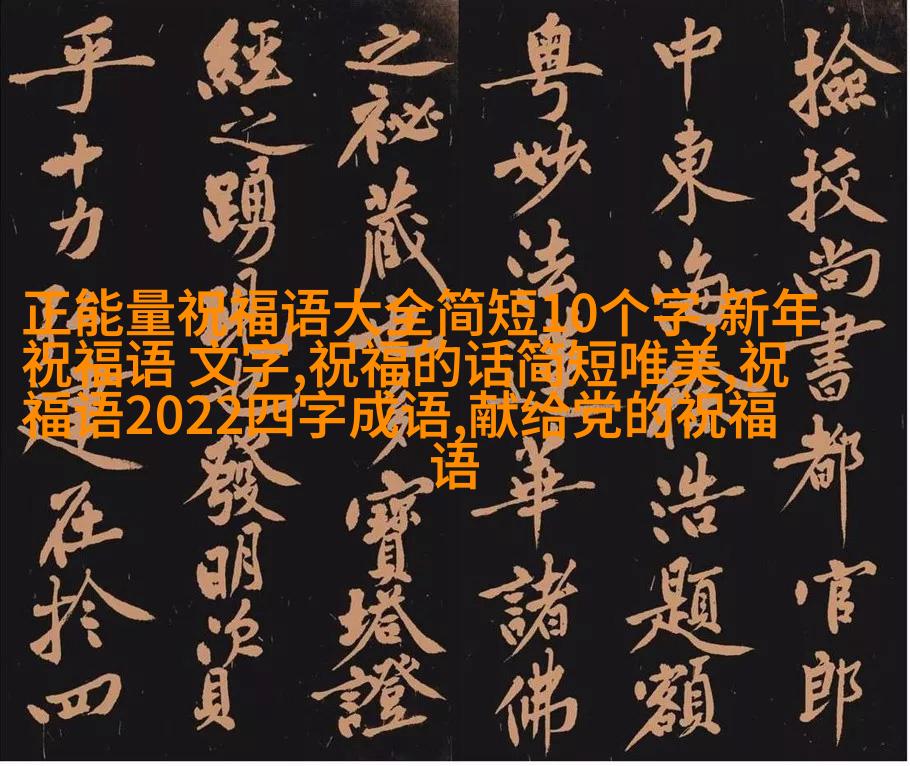 正能量祝福语大全简短10个字,新年
祝福语 文字,祝福的话简短唯美,祝
福语2022四字成语,献给党的祝福
语
撿挍尚書都官郎
中東海徐浩題額
粤妙法華諸佛
之祕藏多寶塔證
經之踴現發明資
乎十力建在於四